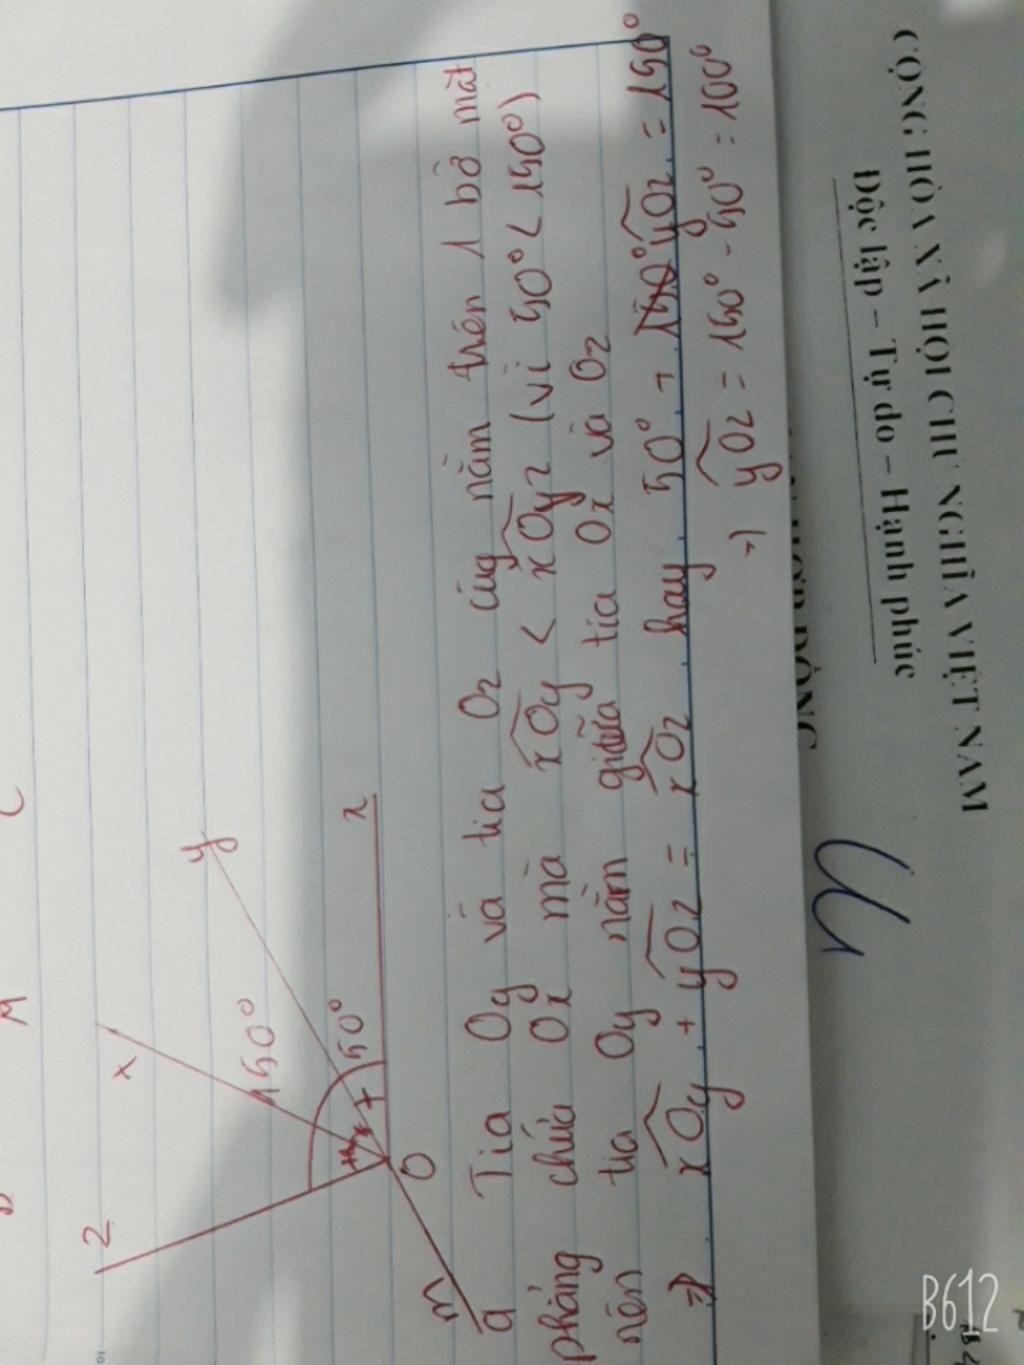 D M C
z
x
y
150°
50°
x
O
m
a Tia Oy và tia Oz cùng nằm trên 1 bờ mặt
phẳng chứa Ox mà xOy < xOyz (vì 50° < 150°)
nên tia Oy nằm giữa tia Ox và Oz
=> xOy + yOz = xOz hay 50° + yOz = 150°
=> yOz = 150° - 50° = 100°
CỘNG HÒA XÃ HỘI CHỦ NGHĨA VIỆT NAM
Độc lập – Tự do – Hạnh phúc
ĐỒNG
B612